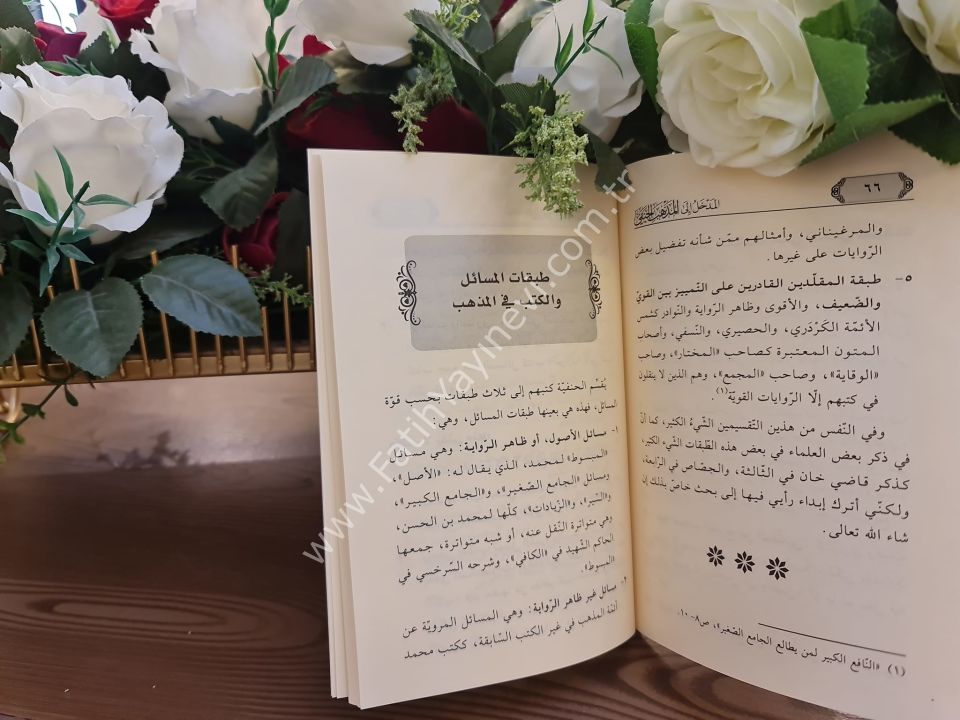 ٦٦
المدخل إلى المذهب الحنفي
والمرغيناني، وأمثالهم ممّن شأنه تفضيل بعض
الرّوايات على غيرها.
٥- طبقة المقلّدين القادرين على التّمييز بين القويّ
والضّعيف، والأقوى وظاهر الرّواية والنّوادر كشمس
الأئمّة الكَرْدَري، والحصيري، والنّسفي، وأصحاب
المتون المعتبرة كصاحب «المختار»، وصاحب
«الوقاية»، وصاحب «المجمع»، وهم الذين لا ينقلون
في كتبهم إلّا الرّوايات القويّة(١).
وفي النّفس من هذين التّقسيمين الشّيءُ الكثير، كما أنّ
في ذكر بعض العلماء في بعض هذه الطّبقات الشّيء الكثير،
كذكر قاضي خان في الثّالثة، والجصاص في الرّابعة،
ولكنّي أترك إبداء رأيي فيها إلى بحث خاصّ بذلك إن
شاء الله تعالى.
(١) «النّافع الكبير لمن يطالع الجامع الصّغير»، ص٨-١٠.
طبقات المسائل
والكتب في المذهب
يُقسِّم الحنفيّة كتبهم إلى ثلاث طبقات بحسب قوّة
المسائل، فهذه هي بعينها طبقات المسائل، وهي:
١- مسائل الأصول، أو ظاهر الرّواية: وهي مسائل
«المبسوط» لمحمد، الذي يقال له: «الأصل»،
ومسائل «الجامع الصّغير»، و«الجامع الكبير»،
و«السّير»، و«الزّيادات»، كلّها لمحمد بن الحسن،
وهي متواترة النّقل عنه، أو شبه متواترة، جمعها
الحاكم الشّهيد في «الكافي»، وشرحه السّرخسي في
«المبسوط».
٢- مسائل غير ظاهر الرّواية: وهي المسائل المرويّة عن
أئمّة المذهب في غير الكتب السّابقة، ككتب محمد
www.FatihYayinevi.com.tr